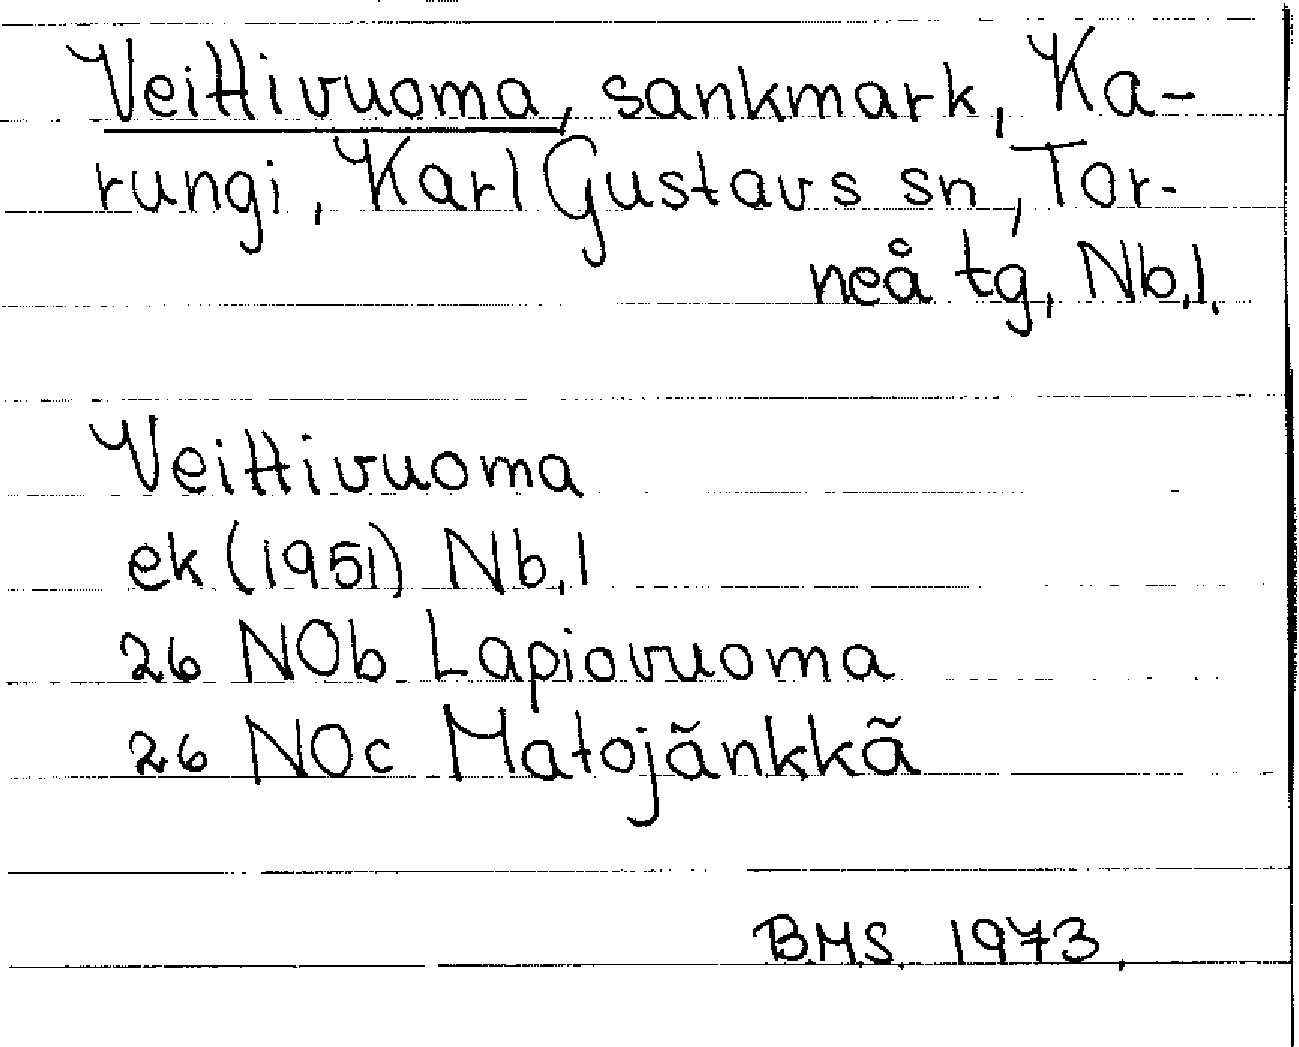 Veittivuoma, sankmark, Ka-
rungi, Karl Gustavs sn, Tor-
neå tg, Nb.l.
Veittivuoma
ek (1951) Nb.l
26 NOb Lapiovuoma
26 NOc Matojänkkä
B.M.S. 1973.